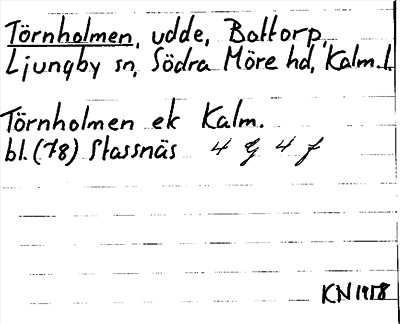 Törnholmen, udde, Bottorp,
Ljungby sn, Södra Möre hd, Kalm.l.
Törnholmen ek Kalm.
bl. (78) Stassnäs 4 g 4 f
KN 1958